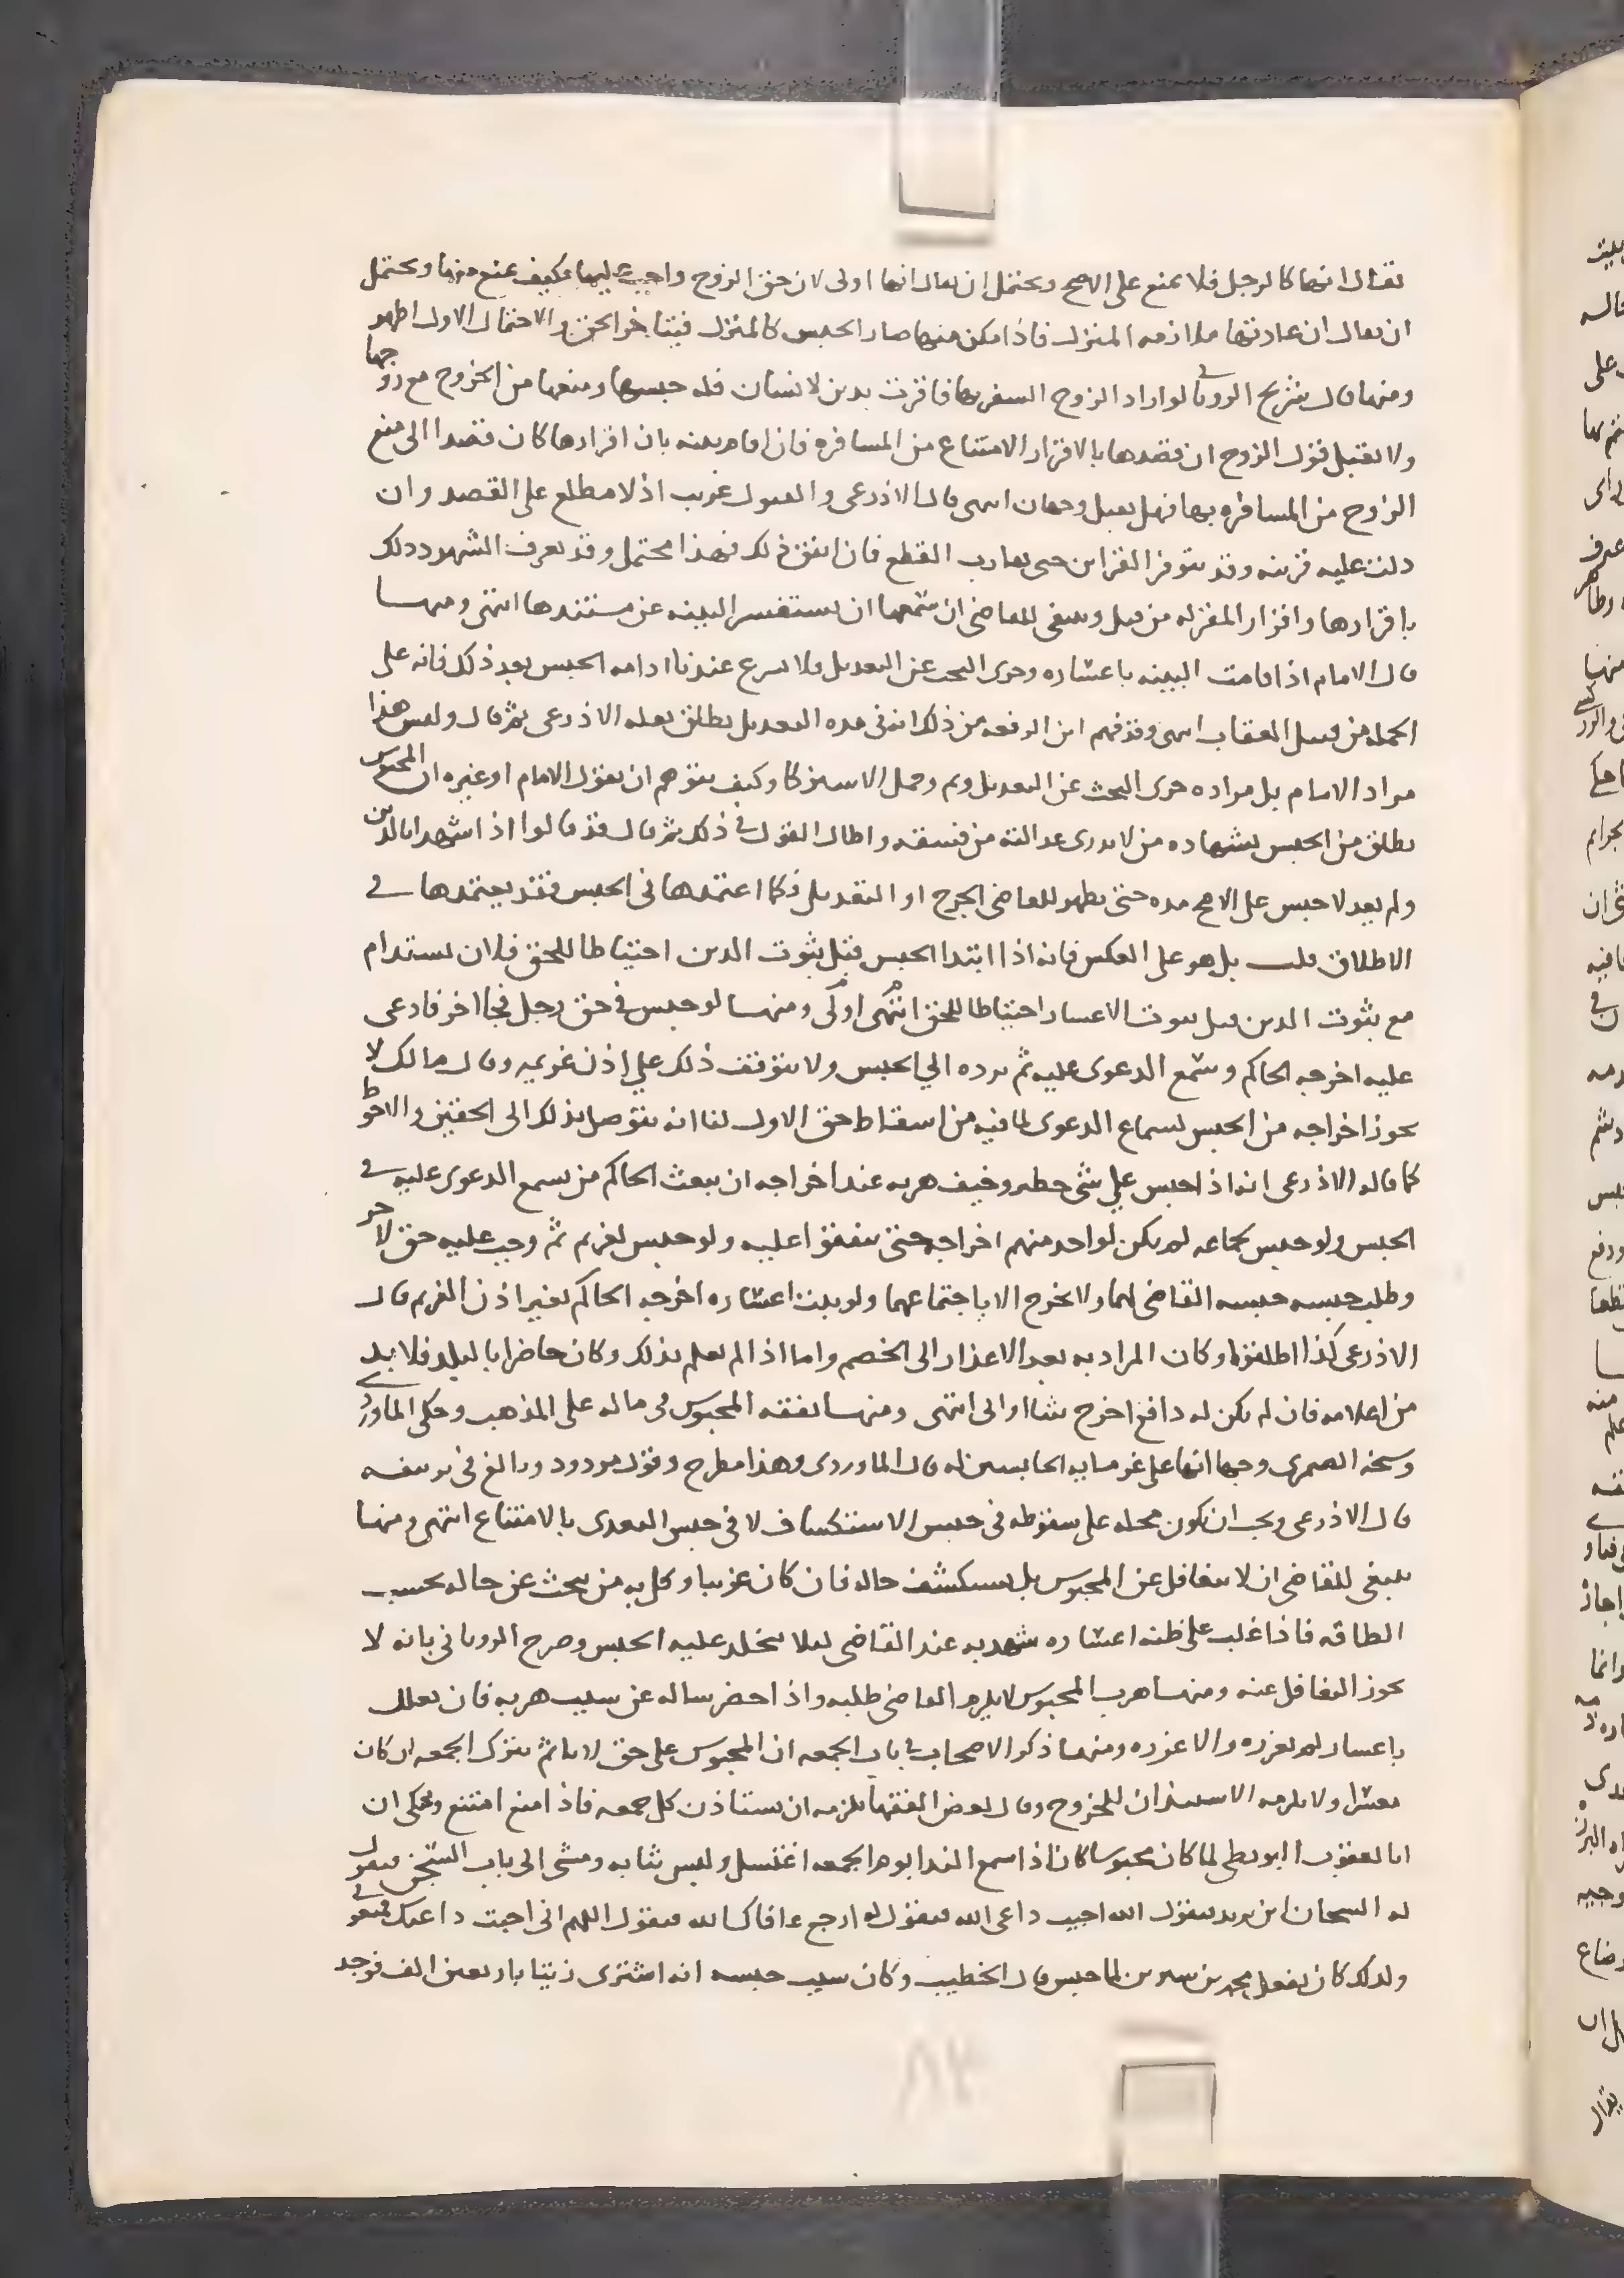 يقال انها كالرجل فلا تمنع على الاصح ويحتمل ان يقال انها اولى لان حق الزوج واجب عليها فكيف تمنع منها ويحتمل
ان يقال ان عادتها ملازمه المنزل فاذا مكن منها صار الحبس كالمنزل فيتاخر الحق والاحتمال الاول اظهر
ومنها قال شريح الروياني لو اراد الزوج السفر بها فاقرت بدين لانسان فله حبسها ومنعها من الخروج مع زوجها
ولا يقبل قول الزوج ان قصدها بالاقرار الامتناع من المسافره فان اقام بينه بان اقرارها كان قصدا الى منع
الزوج من المسافره بها فهل يقبل وجهان انتهى قال الاذرعى والقبول غريب اذ لا مطلع على القصد وان
دلت عليه قرينه وقد تتوفر القراين حتى يقارب القطع فان اتفق ذلك فهذا محتمل وقد يعرف الشهود ذلك
باقرارها واقرار المقر له من قبل وينبغى للقاضى ان سمعها ان يستفسر البينه عن مستندها انتهى ومنها
قال الامام اذا قامت البينه باعساره وجرى البحث عن التعديل فلا يسوغ عندنا ادامه الحبس بعد ذلك فانه على
الجمله من قبيل العقاب انتهى وقد فهم ابن الرفعه من ذلك انه فى مده التعديل يطلق نقله الاذرعى ثم قال وليس هذا
مراد الامام بل مراده جرى البحث عن التعديل وتم وحمل الاستزكا وكيف يتوهم ان يقول الامام او غيره ان المحبوس
يطلق من الحبس بشهاده من لا يدرى عدالته من فسقه واطال القول فى ذلك ثم قال فقد قالوا اذا اشهدا بالدين
ولم يعدلا حبس على الاصح مده حتى يظهر للقاضى الجرح او التعديل فكما اعتمدها فى الحبس فقد يعتمدها فى
الاطلاق قلت بل هو على العكس فانه اذا ابتدا الحبس قبل ثبوت الدين احتياطا للحق فلان يستدام
مع ثبوت الدين قبل ثبوت الاعسار احتياطا للحق انتهى اولى ومنها لو حبس فى حق رجل فجا اخر فادعى
عليه اخرجه الحاكم وسمع الدعوى عليه ثم يرده الى الحبس ولا يتوقف ذلك على اذن غريمه وقال مالك لا
يجوز اخراجه من الحبس لسماع الدعوى لما فيه من اسقاط حق الاول لنا انه يتوصل بذلك الى الحقين والاحوط
كما قاله الاذرعى انه اذا حبس على شى خطر وخيف هربه عند اخراجه ان يبعث الحاكم من يسمع الدعوى عليه فى
الحبس ولو حبس لجماعه لم يكن لواحد منهم اخراجه حتى يتفقوا عليه ولو حبس لغريم ثم وجب عليه حق لاخر
وطلب حبسه حبسه القاضى لهما ولا يخرج الا باجتماعهما ولو ثبت اعساره اخرجه الحاكم بغير اذن الغريم قال
الاذرعى كذا اطلقوا وكان المراد به بعد الاعذار الى الخصم واما اذا لم يعلم بذلك وكان حاضرا بالبلد فلا بد
من اعلامه فان لم يكن له دافع اخرج شا او ابى انتهى ومنها نفقه المحبوس فى ماله على المذهب وحكى الماوردى
وشيخه الصيمرى وجها انها على غرمايه الحابسين له قال الماوردى وهذا مطرح وقول مردود وبالغ فى تزييفه
قال الاذرعى ويجب ان يكون محله على سقوطه فى حبس الاستكشاف لا فى حبس التعدى بالامتناع انتهى ومنها
ينبغى للقاضى ان لا يتغافل عن المحبوس بل يستكشف حاله فان كان غريبا وكل به من يبحث عن حاله بحسب
الطاقه فاذا غلب على ظنه اعساره شهد به عند القاضى ليلا يتخلد عليه الحبس وصرح الرويانى بانه لا
يجوز التغافل عنه ومنها هرب المحبوس لا يلزم القاضى طلبه واذا احضر ساله عن سبب هربه فان تعلل
باعسار لم يعزره والا عزره ومنها ذكر الاصحاب فى باب الجمعه ان المحبوس على حق لا ياثم بترك الجمعه ان كان
معسرا ولا يلزمه الاستيذان للخروج وقال بعض الفقها يلزمه ان يستاذن كل جمعه فاذا منع امتنع وحكى ان
ابا يعقوب البويطى لما كان محبوسا كان اذا سمع الندا يوم الجمعه اغتسل ولبس ثيابه ومشى الى باب السجن فيقول
له السجان اين تريد فيقول الله اجيب داعى الله فيقول له ارجع عافاك الله فيقول اللهم انى اجبت داعيك فمنعونى
ولذلك كان يفعل محمد بن سيرين لما حبس قال الخطيب وكان سبب حبسه انه اشترى زيتا باربعين الف فوجد